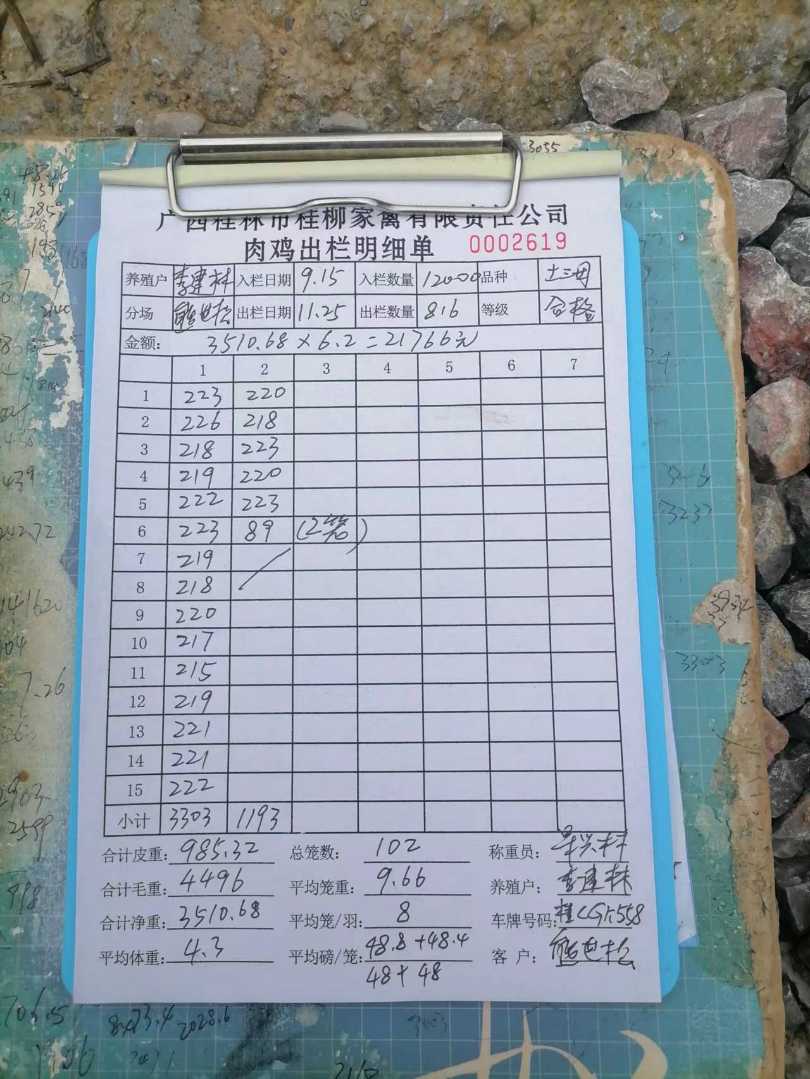 广西桂林市桂柳家禽有限责任公司
肉鸡出栏明细单 0002619
养殖户 李建林 入栏日期 9.15 入栏数量 12000 品种 土三因
分场 熊世松 出栏日期 11.25 出栏数量 816 等级 合格
金额: 3510.68 × 6.2 = 21766元
1 2 3 4 5 6 7
1 223 220
2 226 218
3 218 223
4 219 220
5 222 223
6 223 89 (2笼)
7 219
8 218
9 220
10 217
11 215
12 219
13 221
14 221
15 222
小计 3303 1193
合计皮重: 985.32 总笼数: 102 称重员:
合计毛重: 4496 平均笼重: 9.66 养殖户: 李建林
合计净重: 3510.68 平均笼/羽: 8 车牌号码:
平均体重: 4.3 平均磅/笼: 48.8 + 48.4 客户: 熊世松
48 + 48